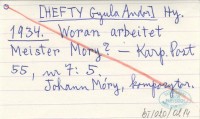 [HEFTY Gyula Andor] Hy.
1934. Woran arbeitet
Meister Móry? — Karp. Post
55, nr 7: 5.
Johann Móry, komponzton.